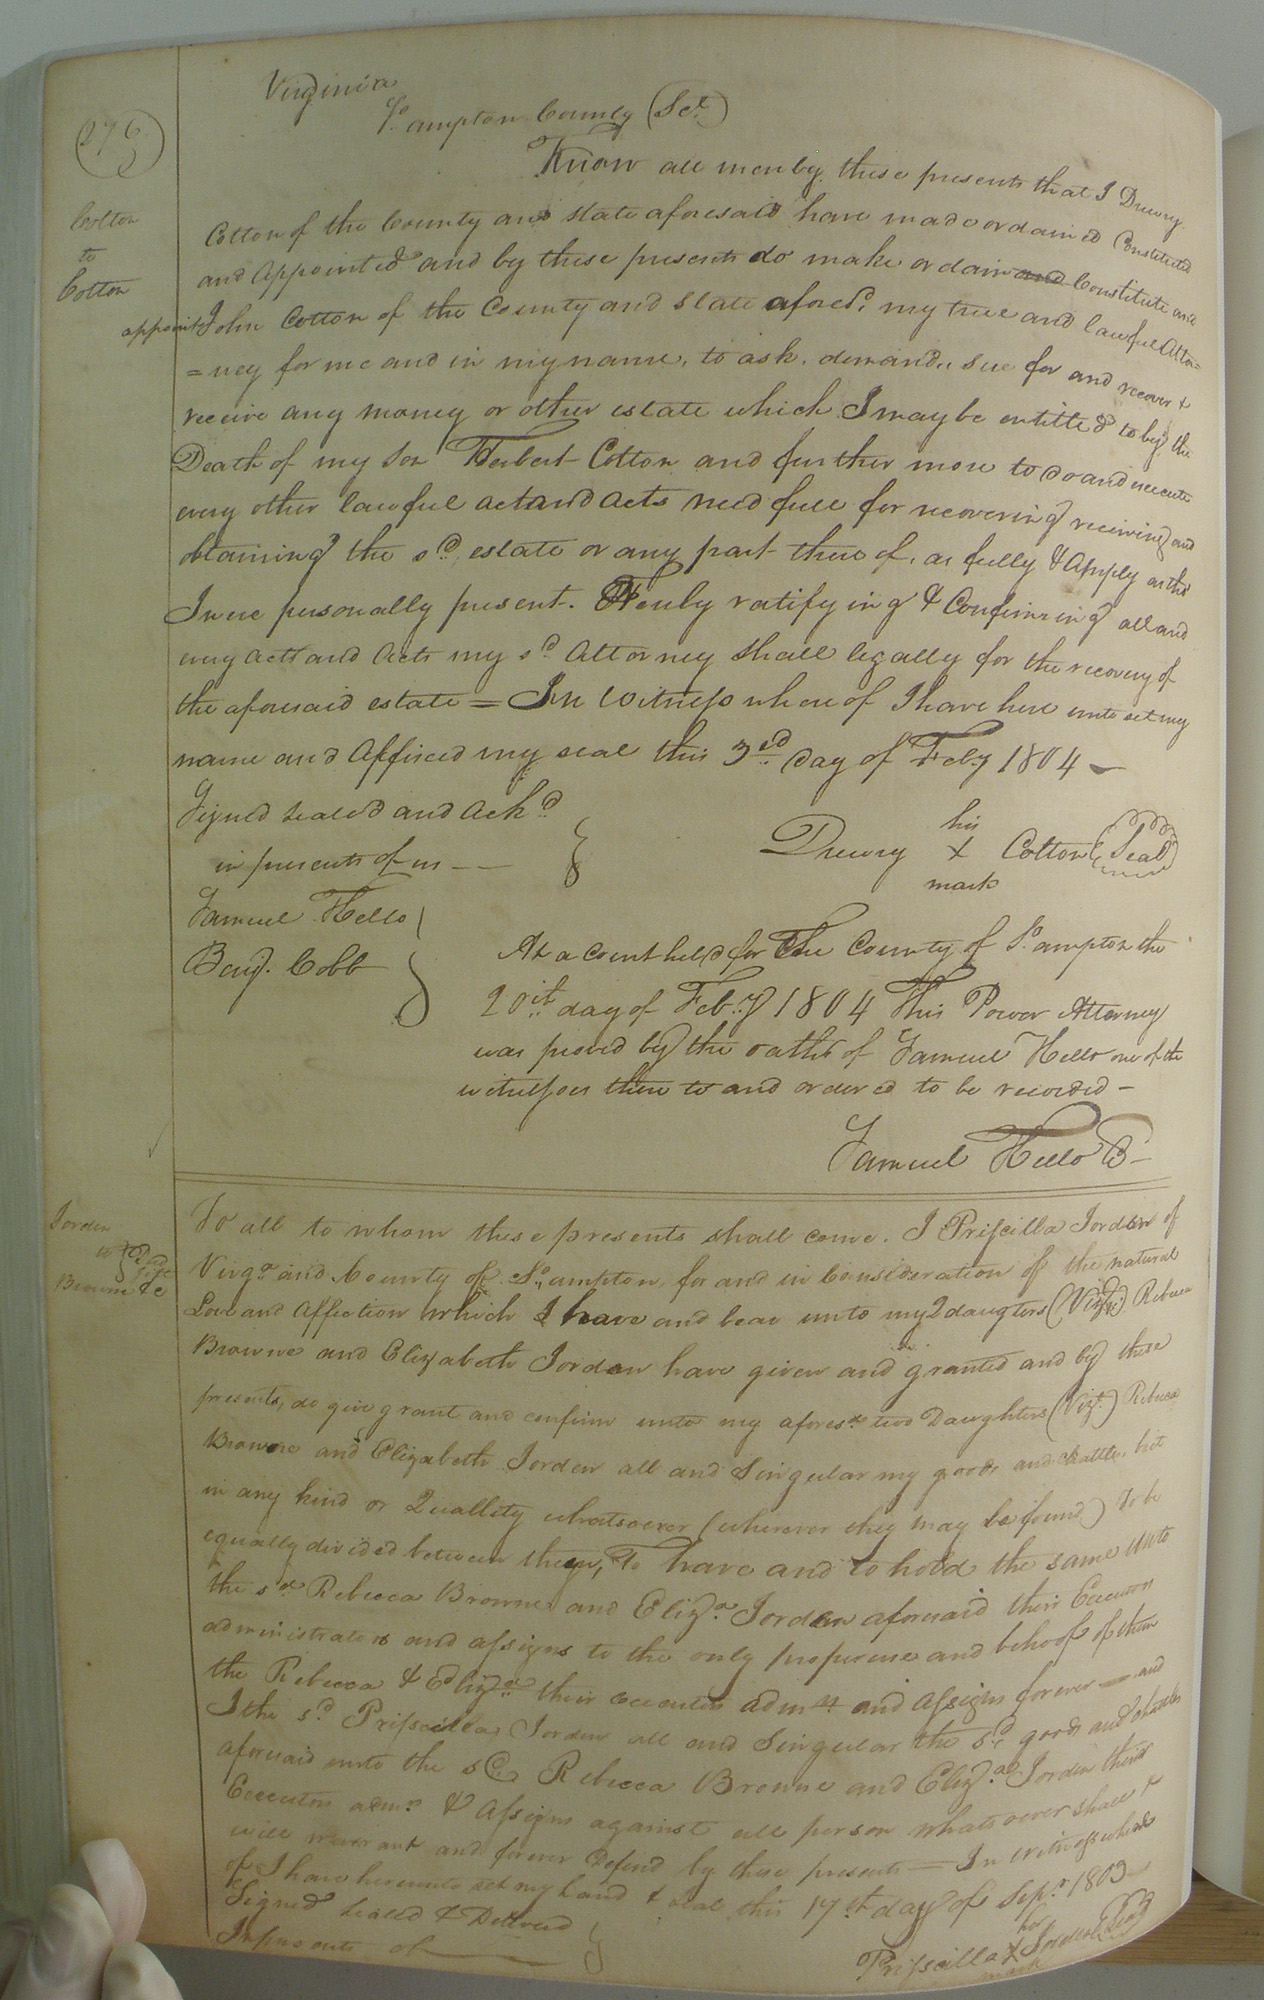 Virginia
So. ampton County (Sct.)
276
Know all men by these presents that I Drewry
Cotton
to
Cotton
Cotton of the County and state aforesaid have made ordained Constituted
and Appointed and by these presents do make ordain and Constitute and
appoint John Cotton of the County and State afores.d my true and lawful Attor=
=ney for me and in my name, to ask. demand, sue for and recover &
receive any money or other estate which I may be entitled to by the
Death of my Son Herbert Cotton and further more to do and execute
every other lawful act and acts need full for recovering receiving and
obtaining the s.d estate or any part there of, as fully & Amply as tho
I were personally present. Herby ratifying & Confirming all and
every act and Acts my s.d Attorney shall legally for the recovery of
the aforesaid estate = In Witness where of I have here unto set my
name and Affixed my seal this 3rd day of Feby 1804 —
Signed sealed and ack.d
in presents of us —
Drewry his X mark Cotton (Seal)
Samuel Kello
Benj. Cobb
At a Court held for the County of So. ampton the
20it day of Feb.y 1804 This Power Attorney
was proved by the oath of Samuel Kello one of the
witnesses there to and ordered to be recorded —
Samuel Kello
Jorden
to
Browne &c
To all to whom these presents shall come. I Prissilla Jorden of
Virg.a and County of So. ampton, for and in Consideration of the natural
Love and Affection which I have and bear unto my 2 daugters (Vizt) Rebecca
Browne and Elizabeth Jorden have given and granted and by these
presents, do give grant and confirm unto my afores.d two Daughters (Vizt.) Rebecca
Browne and Elizabeth Jorden all and Singular my goods and chattles, but
in any kind or Quallity whatsoever (wherever they may be found) To be
equally divided between them, To have and to hold the same unto
the s.d Rebecca Browne and Eliz.a Jorden aforesaid their Executors
administrators and assigns to the only proper use and behoof of them
the Rebecca & Eliz.a their executors adm.rs and Assigns forever — and
I the s.d Prisscilla Jorden all and Singular the s.d goods and chatles
aforesaid unto the s.d Rebecca Browne and Eliz.a Jorden their
Executors adm.rs & Assigns against all person whatsoever shall &
will warrant and forever Defend by these presents — In witness where
of I have hereunto set my hand & seal this 17th day of Sep.r 1803
Signed sealed & Delivered
In presents of —
Prisscilla her X mark Jorden (Seal)